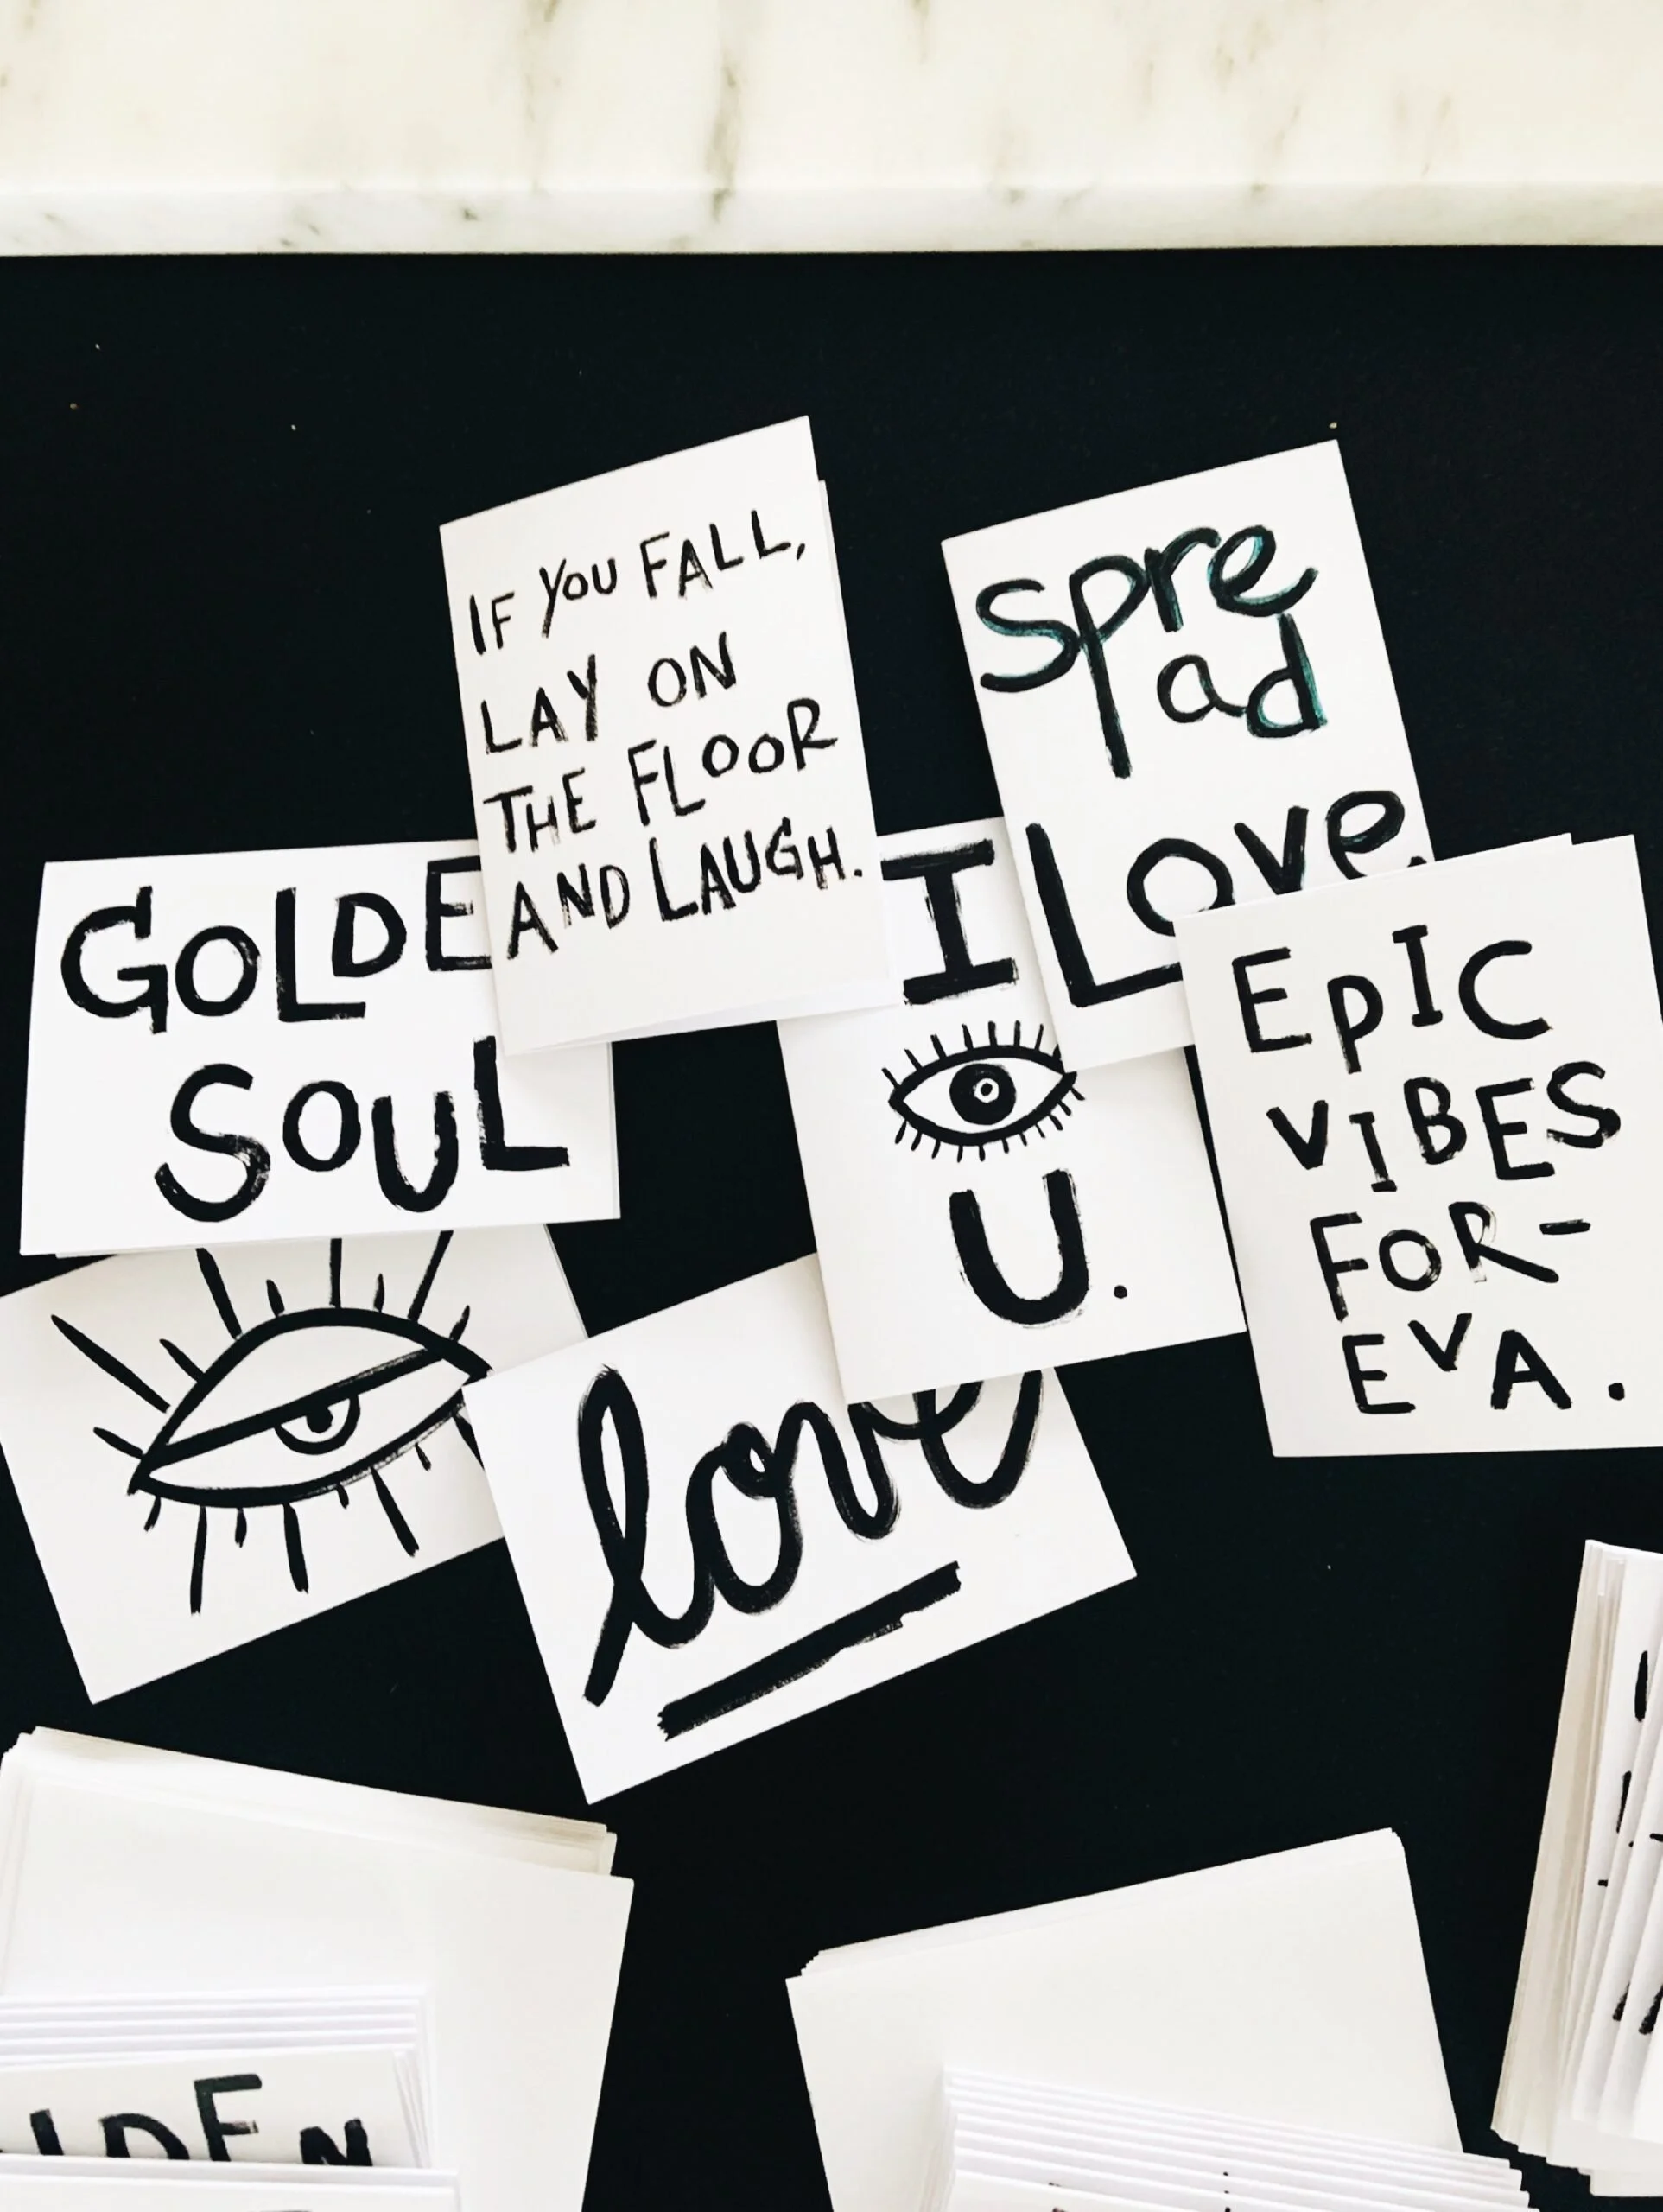 IF YOU FALL,
LAY ON
THE FLOOR
AND LAUGH.
spre
ad
Love.
GOLDE
SOUL
I
U.
EpIC
VIBES
FOR-
EVA.
love
LDEN